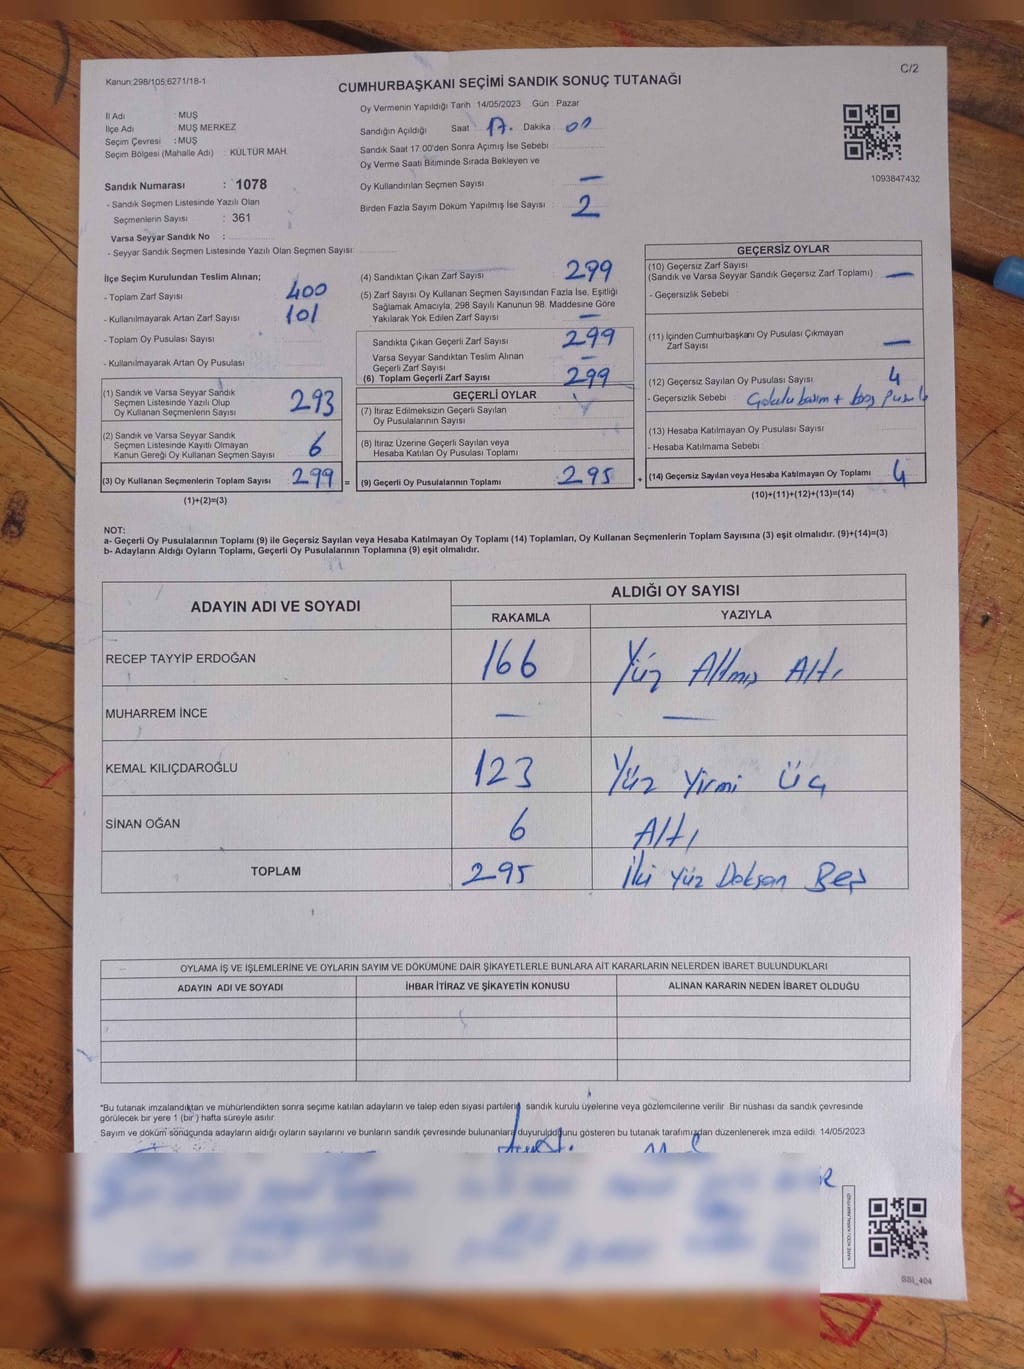 Kanun:298/105;6271/18-1
C/2
CUMHURBAŞKANI SEÇİMİ SANDIK SONUÇ TUTANAĞI
İl Adı : MUŞ
İlçe Adı : MUŞ MERKEZ
Seçim Çevresi : MUŞ
Seçim Bölgesi (Mahalle Adı) : KÜLTÜR MAH.
Sandık Numarası : 1078
- Sandık Seçmen Listesinde Yazılı Olan
Seçmenlerin Sayısı : 361
Varsa Seyyar Sandık No :
- Seyyar Sandık Seçmen Listesinde Yazılı Olan Seçmen Sayısı:
Oy Vermenin Yapıldığı Tarih 14/05/2023 Gün : Pazar
Sandığın Açıldığı Saat 17. Dakika : 00
Sandık Saat 17:00'den Sonra Açımış İse Sebebi :
Oy Verme Saati Bitiminde Sırada Bekleyen ve
Oy Kullandırılan Seçmen Sayısı : —
Birden Fazla Sayım Döküm Yapılmış İse Sayısı : 2
1093847432
İlçe Seçim Kurulundan Teslim Alınan;
- Toplam Zarf Sayısı : 400
- Kullanılmayarak Artan Zarf Sayısı : 101
- Toplam Oy Pusulası Sayısı :
- Kullanılmayarak Artan Oy Pusulası :
(1) Sandık ve Varsa Seyyar Sandık
Seçmen Listesinde Yazılı Olup
Oy Kullanan Seçmenlerin Sayısı 293
(2) Sandık ve Varsa Seyyar Sandık
Seçmen Listesinde Kayıtlı Olmayan
Kanun Gereği Oy Kullanan Seçmen Sayısı 6
(3) Oy Kullanan Seçmenlerin Toplam Sayısı 299 =
(1)+(2)=(3)
(4) Sandıktan Çıkan Zarf Sayısı : 299
(5) Zarf Sayısı Oy Kullanan Seçmen Sayısından Fazla İse, Eşitliği
Sağlamak Amacıyla; 298 Sayılı Kanunun 98. Maddesine Göre
Yakılarak Yok Edilen Zarf Sayısı : —
Sandıkta Çıkan Geçerli Zarf Sayısı : 299
Varsa Seyyar Sandıktan Teslim Alınan
Geçerli Zarf Sayısı : —
(6) Toplam Geçerli Zarf Sayısı : 299
GEÇERLİ OYLAR
(7) İtiraz Edilmeksizin Geçerli Sayılan
Oy Pusulalarının Sayısı :
(8) İtiraz Üzerine Geçerli Sayılan veya
Hesaba Katılan Oy Pusulası Toplamı :
(9) Geçerli Oy Pusulalarının Toplamı : 295 +
GEÇERSİZ OYLAR
(10) Geçersiz Zarf Sayısı
(Sandık ve Varsa Seyyar Sandık Geçersiz Zarf Toplamı) : —
- Geçersizlik Sebebi :
(11) İçinden Cumhurbaşkanı Oy Pusulası Çıkmayan
Zarf Sayısı : —
(12) Geçersiz Sayılan Oy Pusulası Sayısı : 4
- Geçersizlik Sebebi : + boş pusula
(13) Hesaba Katılmayan Oy Pusulası Sayısı :
- Hesaba Katılmama Sebebi :
(14) Geçersiz Sayılan veya Hesaba Katılmayan Oy Toplamı : 4
(10)+(11)+(12)+(13)=(14)
NOT:
a- Geçerli Oy Pusulalarının Toplamı (9) ile Geçersiz Sayılan veya Hesaba Katılmayan Oy Toplamı (14) Toplamları, Oy Kullanan Seçmenlerin Toplam Sayısına (3) eşit olmalıdır. (9)+(14)=(3)
b- Adayların Aldığı Oyların Toplamı, Geçerli Oy Pusulalarının Toplamına (9) eşit olmalıdır.
ADAYIN ADI VE SOYADI
ALDIĞI OY SAYISI
RAKAMLA YAZIYLA
RECEP TAYYİP ERDOĞAN 166 Yüz Altmış Altı
MUHARREM İNCE — —
KEMAL KILIÇDAROĞLU 123 Yüz Yirmi Üç
SİNAN OĞAN 6 Altı
TOPLAM 295 İki Yüz Doksan Beş
OYLAMA İŞ VE İŞLEMLERİNE VE OYLARIN SAYIM VE DÖKÜMÜNE DAİR ŞİKAYETLERLE BUNLARA AİT KARARLARIN NELERDEN İBARET BULUNDUKLARI
ADAYIN ADI VE SOYADI İHBAR İTİRAZ VE ŞİKAYETİN KONUSU ALINAN KARARIN NEDEN İBARET OLDUĞU
*Bu tutanak imzalandıktan ve mühürlendikten sonra seçime katılan adayların ve talep eden siyasi partilerin sandık kurulu üyelerine veya gözlemcilerine verilir. Bir nüshası da sandık çevresinde
görülecek bir yere 1 (bir ) hafta süreyle asılır.
Sayım ve döküm sonucunda adayların aldığı oyların sayılarını ve bunların sandık çevresinde bulunanlara duyurulduğunu gösteren bu tutanak tarafımızdan düzenlenerek imza edildi. 14/05/2023
KARE KODU KARALAMAYINIZ!